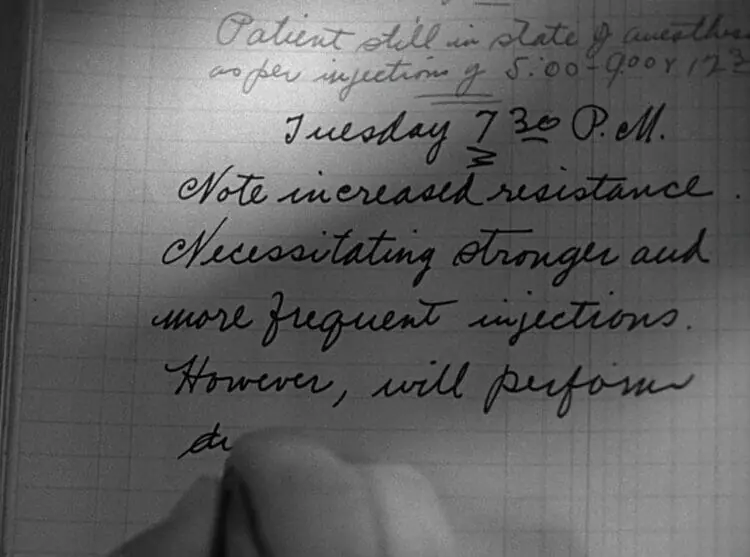 Patient still in state of anesthes
as per injections of 5:00-9:00 & 12
Tuesday 7 30 P.M.
Note increased resistance.
Necessitating stronger and
more frequent injections.
However, will perform